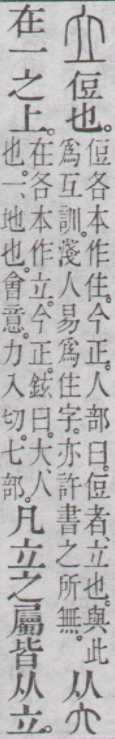 立侸也。侸各本作住。今正。人部曰。侸者、立也。與此
爲互訓。淺人易爲住字。亦許書之所無。从亣
在一之上。在各本作立。今正。鉉曰。大、人
也。一、地也。會意。力入切。七部。凡立之屬皆从立。